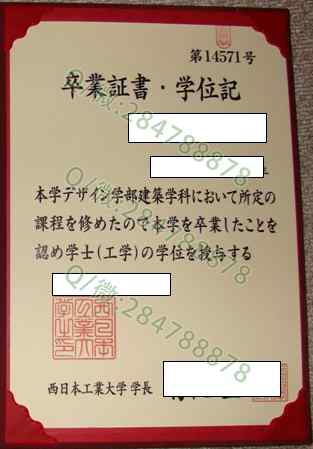 第14571号
卒業証書・学位記
本学デザイン学部建築学科において所定の
課程を修めたので本学を卒業したことを
認め学士(工学)の学位を授与する
西日本工業大学学長
Q/微:284788878
Q/微:284788878
Q/微:284788878